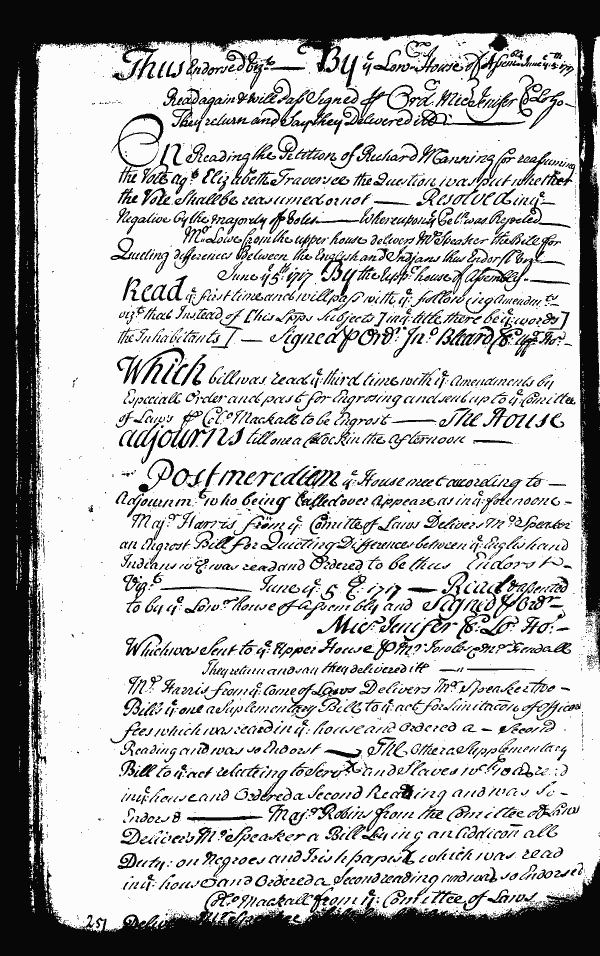 Thus Endorsed Vizt — By ye Lowr House of Assembly June ye 5th 1717
Read again & will pass Signed p Ordr Mich Jenifer Cl Lo Ho
They return and say they Delivered itt
On Reading the Petition of Richard Manning for reassuming
the Vote agt Elizabeth Traverse the Question was put whether
the Vote Shall be reassumed or not — Resolved in ye
Negative by the majority of Votes — Whereupon ye Petn was Rejected
Mr Lowe from the upper house delivers Mr Speaker the Bill for
Quieting differences Between the English and Indians thus Endorst Vizt
June ye 5th 1717 By the Uppr house of Assembly
Read ye first time and will pass with ye following Amendmts
vizt that Instead of [his Lpps Subjects] in ye title there be ye words]
the Inhabitants] — Signed p Ordr Jno Beard Cl uppr Ho
Which bill was read ye third time with ye Amendments by
Especiall Order and past for Engrosing and sent up to ye Comittee
of Laws p Colo Mackall to be Engrost — The House
adjourns till one a Clock in the Afternoon —
Postmeredium ye House meet according to —
Adjournmt who being Called over Appeare as in ye forenoone
Majr Harris from ye Comitte of Laws Delivers Mr Speaker
an Engrost Bill for Quieting Differences between ye English and
Indians wch was read and Ordered to be thus Endorst
Vizt — June ye 5th 1717 — Read & assented
to by ye Lowr house of Assembly and Signed p Ordr
Micl Jenifer Cl Lo Ho
Which was Sent to ye Upper House p Mr & Mr Kendall
They return and say they delivered itt
Mr Harris from ye Come of Laws Delivers Mr Speaker two
Bills ye one a Suplementary Bill to ye act for limitation of Officers
fees which was read in ye house and Ordered a Second
Reading and was so Endorst — The Other a Supplementary
Bill to ye act relating to Servts and Slaves wch was read
in ye house and Ordered a Second Reading and was So
Endors'd — Majr Robins from the Comittee of Laws
Delivers Mr Speaker a Bill Laying an addicon all
Duty on Negroes and Irish papists which was read
in ye house and Ordered a Second reading and was so Endorsed
Colo Mackall from ye Comittee of Laws
251 Delivers Mr Speaker